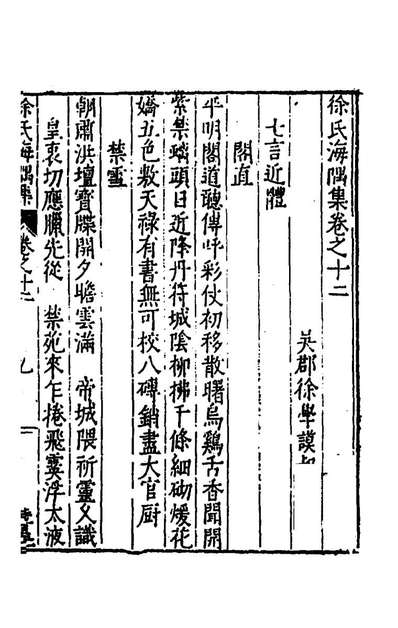 徐氏海隅集卷之十二
吳郡徐學謨
七言近體
閣直
平明閣道聽傳呼彩仗初移散曙烏鷄舌香聞開
紫禁螭頭日近降丹符城陰柳拂千條細砌煖花
嬌五色敷天祿有書無可校八磚銷盡大官厨
禁雪
朝肅洪壇寶牒開夕瞻雲滿 帝城隈祈靈又識
皇衷切應臘先從 禁苑來乍捲飛霙浮太液
徐氏海隅集 卷之十二 一